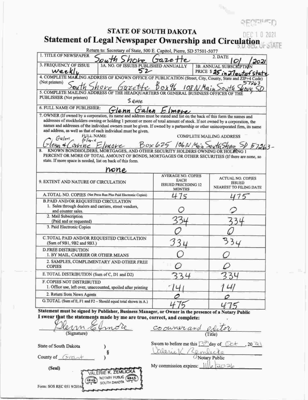 STATE OF SOUTH DAKOTA
Statement of Legal Newspaper Ownership and Circulation
Return to: Secretary of State, 500 E. Capitol, Pierre, SD 57501-5077
1. TITLE OF NEWSPAPER
South Shore Gazette
2. DATE
10/ 2021
3. FREQUENCY OF ISSUE
weekly
3A. NO. OF ISSUES PUBLISHED ANNUALLY
52
3B. ANNUAL SUBSCRIPTION
PRICE $
4. COMPLETE MAILING ADDRESS OF KNOWN OFFICE OF PUBLICATION (Street, City, County, State and ZIP+4 Code)
(Not printers)
South Shore Gazette Box 6 108 N Main South Shore SD.
57263
5. COMPLETE MAILING ADDRESS OF THE HEADQUARTERS OR GENERAL BUSINESS OFFICE OF THE
PUBLISHER (Not printers)
Same
6. FULL NAME OF PUBLISHER:
Glenn Galen Elmore
7. OWNER (If owned by a corporation, its name and address must be stated and also the names and
addresses of stockholders owning or holding 1 percent or more of total amount of stock. If not owned by a corporation, the
names and addresses of the individual owners must be given. If owned by a partnership or other unincorporated firm, its name
and address, as well as that of each individual must be given.
FULL NAME
COMPLETE MAILING ADDRESS
Elmore
South Shore SD 57263
8. KNOWN BONDHOLDERS, MORTGAGEES, AND OTHER SECURITY HOLDERS OWNING OR HOLDING 1
PERCENT OR MORE OF TOTAL AMOUNT OF BONDS, MORTGAGES OR OTHER SECURITIES (If there are none, so
state. If more space is needed, list on back of this form.
none
9. EXTENT AND NATURE OF CIRCULATION
AVERAGE NO. COPIES EACH ISSUED PRECEDING 12 MONTHS
ACTUAL NO. COPIES ISSUED NEAREST TO FILING DATE
A. TOTAL NO. COPIES
475 475
B. PAID AND/OR REQUESTED CIRCULATION
1. Sales through dealers and carriers, street vendors,
and counter sales
0 0
2. Mail Subscription
(Paid and/or requested)
334 334
3. Paid Electronic Copies
0 0
C. TOTAL PAID AND/OR REQUESTED CIRCULATION
(Sum of 9B1, 9B2 and 9B3)
334 334
D. FREE DISTRIBUTION
1. BY MAIL, CARRIER OR OTHER MEANS
0 0
2. SAMPLES, COMPLIMENTARY AND OTHER FREE
COPIES
0 0
E. TOTAL DISTRIBUTION (Sum of C, D1 and D2)
334 334
F. COPIES NOT DISTRIBUTED
1. Office use, left over, unaccounted, spoiled after printing
141 141
2. Return from News Agents
0 0
G. TOTAL (Sum of E, F1 and F2 - Should equal total shown in A)
475 475
Statement must be signed by Publisher, Business Manager, or Owner in the presence of a Notary Public
I swear that the statements made by me are true, correct, and complete:
(Signature)
(Title)
State of South Dakota )
County of Grant )
Sworn to before me this day of Oct
(Notary Public)
My commission expires:
(Seal)
NOTARY PUBLIC
SOUTH DAKOTA